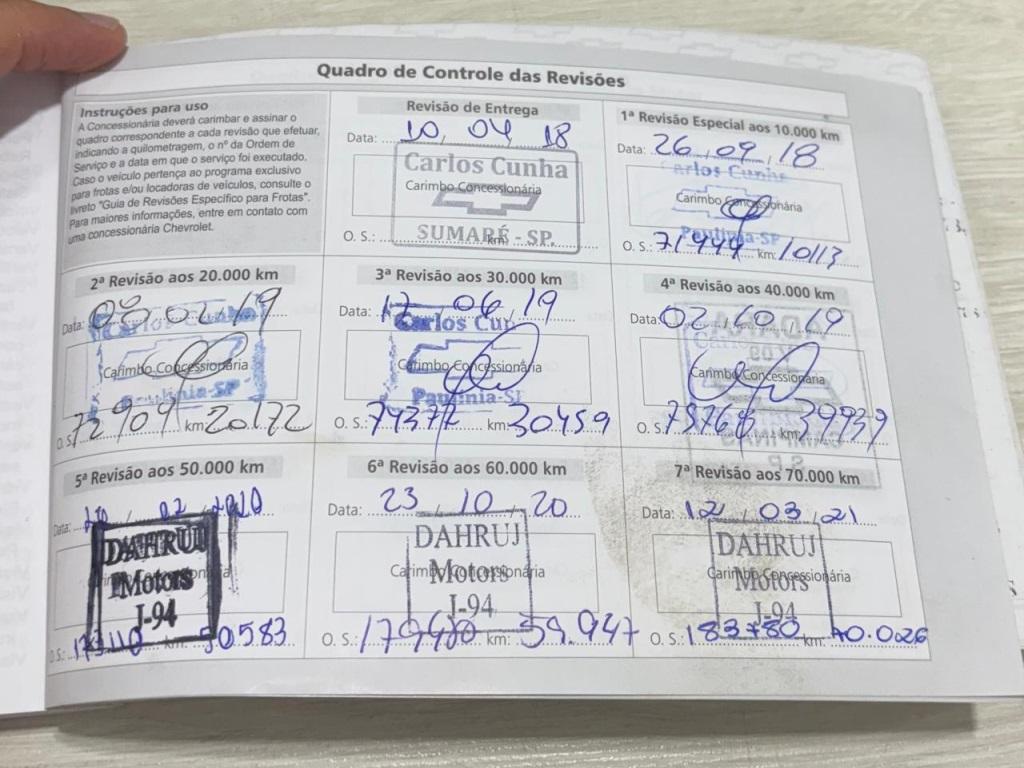 Quadro de Controle das Revisões
Instruções para uso
A Concessionária deverá carimbar e assinar o
quadro correspondente a cada revisão que efetuar,
indicando a quilometragem, o nº da Ordem de
Serviço e a data em que o serviço foi executado.
Caso o veículo pertença ao programa exclusivo
para frotas e/ou locadoras de veículos, consulte o
livreto "Guia de Revisões Específico para Frotas".
Para maiores informações, entre em contato com
uma concessionária Chevrolet.
Revisão de Entrega
Data: 10, 04 18
Carlos Cunha
Carimbo Concessionária
SUMARÉ - SP.
O. S.: km:
1ª Revisão Especial aos 10.000 km
Data: 26, 09, 18
Carlos Cunha
Carimbo Concessionária
Paulínia-SP
O. S.: 71944 km: 10113
2ª Revisão aos 20.000 km
Data: 19
Carlos Cunha
Carimbo Concessionária
Paulínia-SP
O. S. 72909 km 20172
3ª Revisão aos 30.000 km
Data: 17 06, 19
Carlos Cun
Carimbo Concessionária
Paulínia-SP
O. S.: 74377 km 30459
4ª Revisão aos 40.000 km
Data: 02, 10, 19
Carimbo Concessionária
O. S. km 39939
5ª Revisão aos 50.000 km
Data: 02, 2020
DAHRUJ
Motors
J-94
O.S.: 173110 km: 50583
6ª Revisão aos 60.000 km
Data: 23, 10, 20
DAHRUJ
Carimbo Concessionária
Motors
J-94
O. S.: 179480 km: 59.947
7ª Revisão aos 70.000 km
Data: 12, 03, 21
DAHRUJ
Carimbo Concessionária
Motors
J-94
O. S.: 183780 km: 70.026